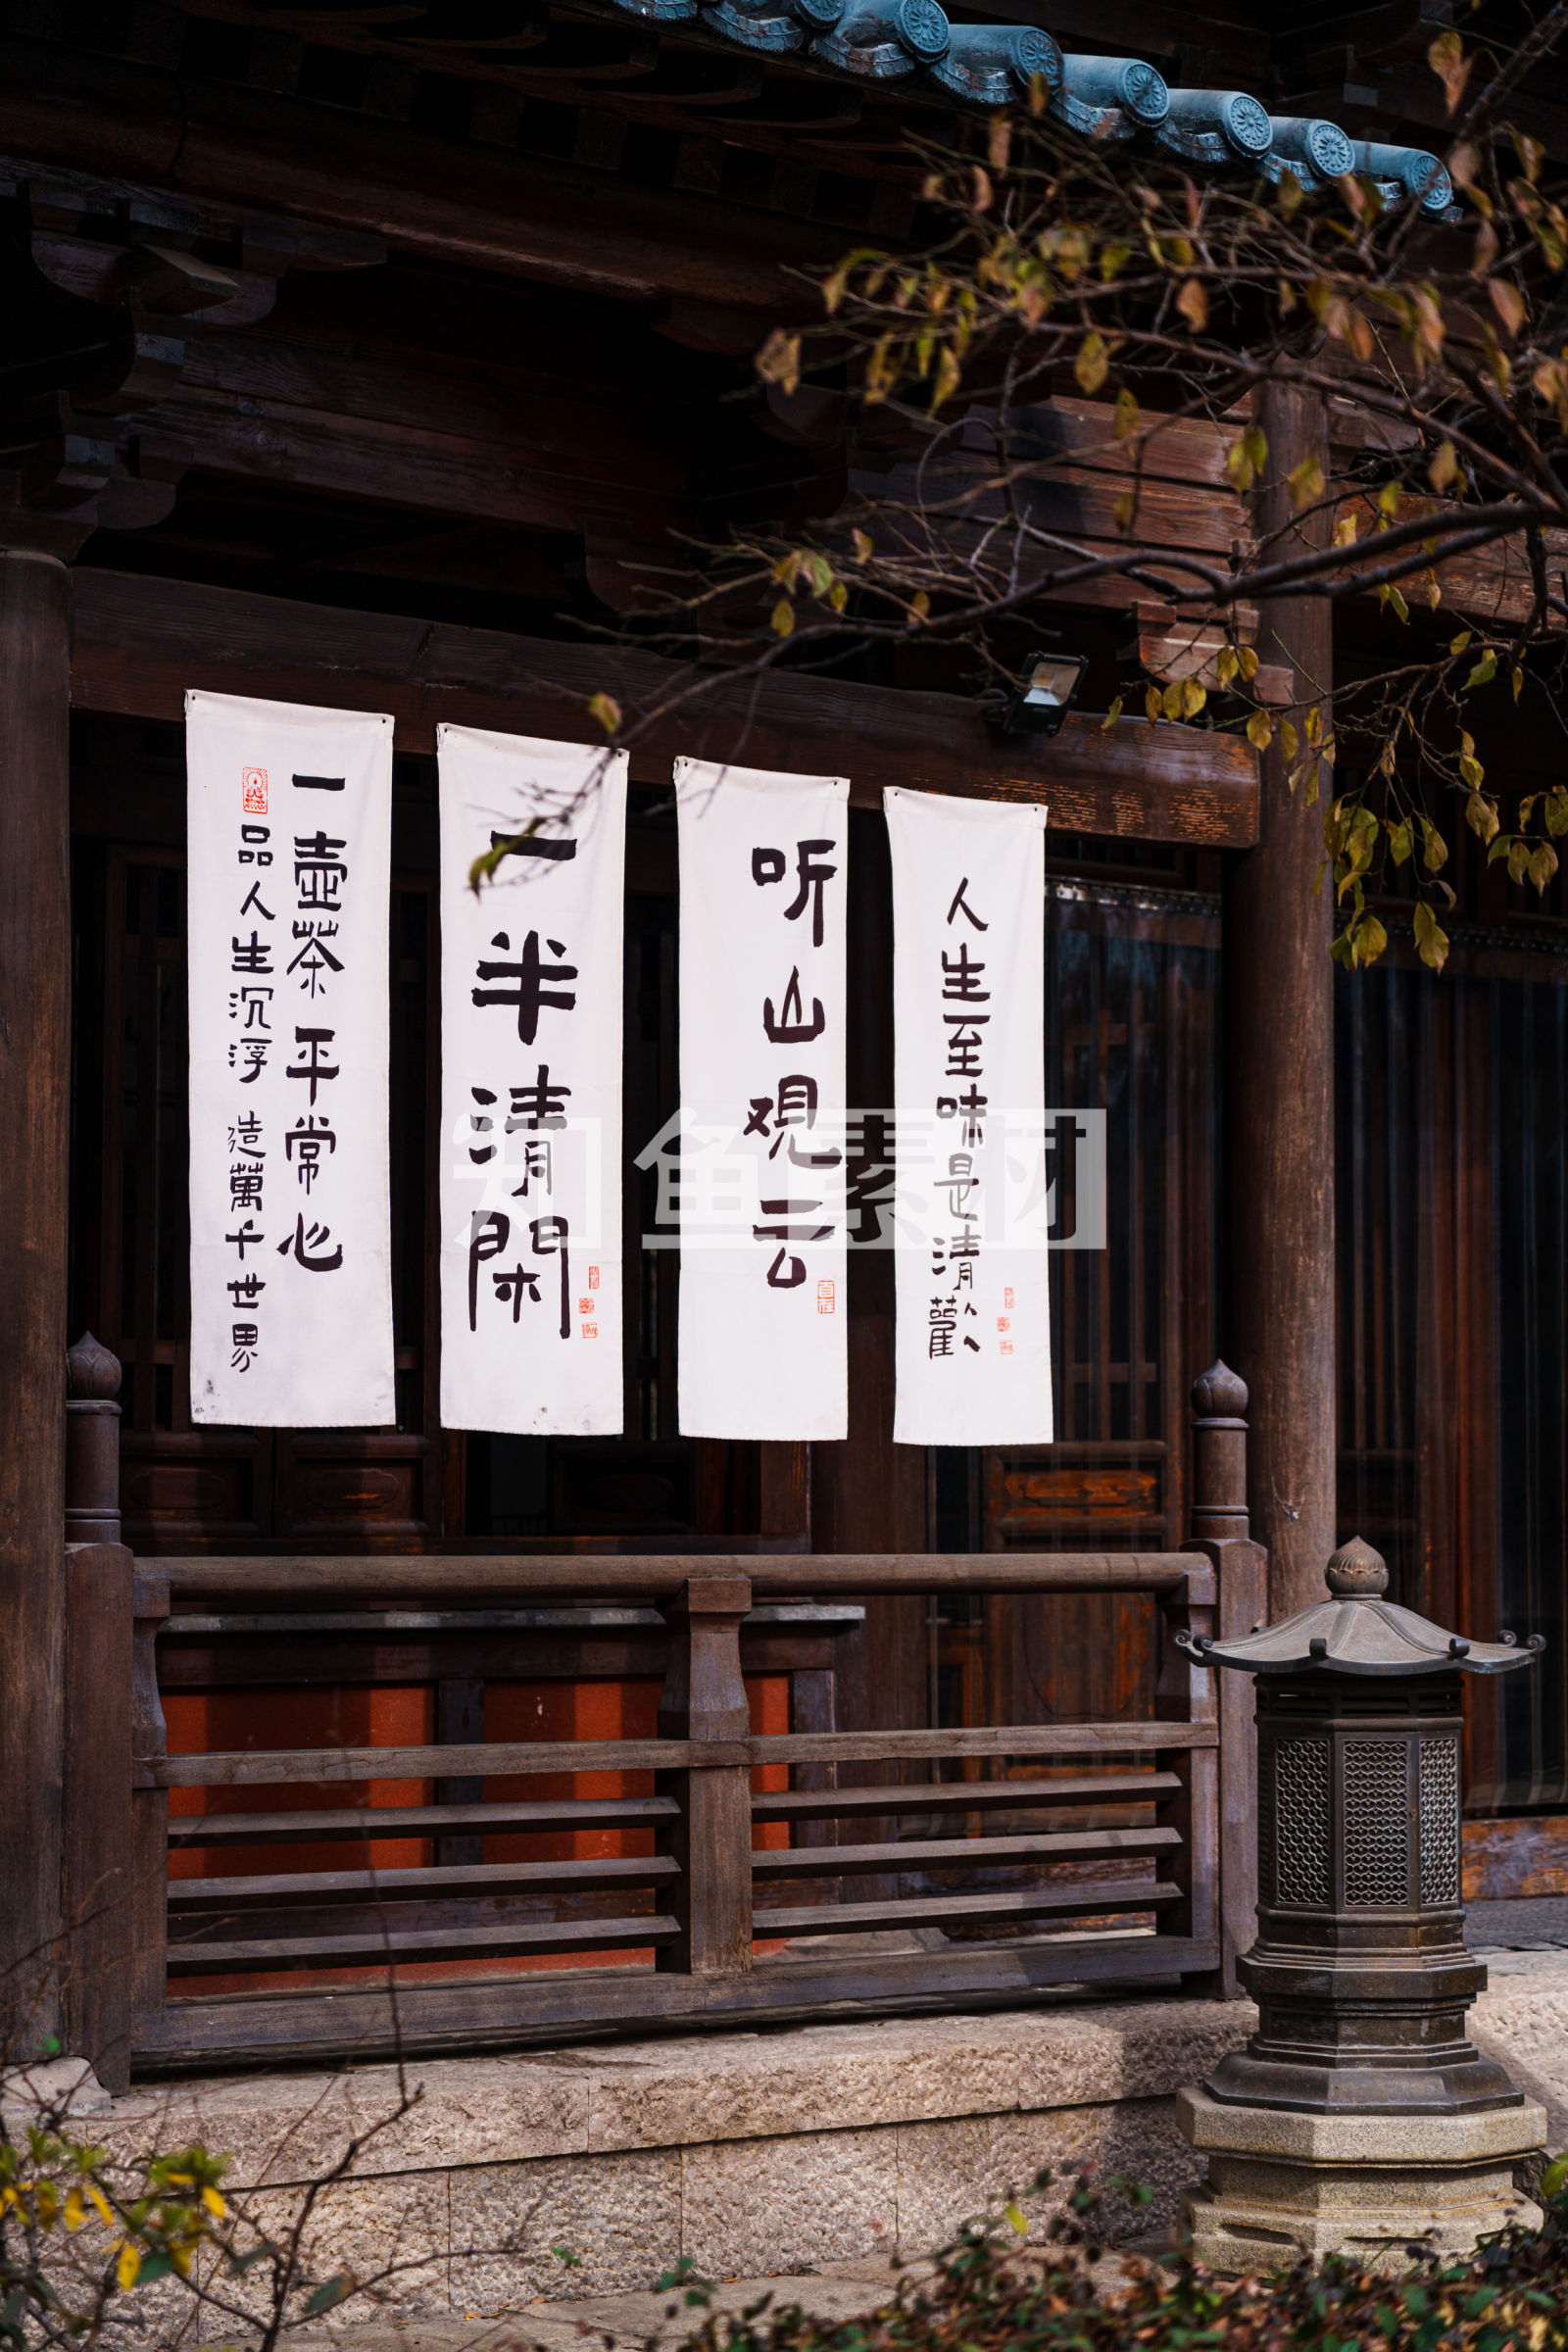 人生至味是清歡
听山观云
一半清閑
一壶茶平常心
品人生沉浮 造萬千世界
知鱼素材